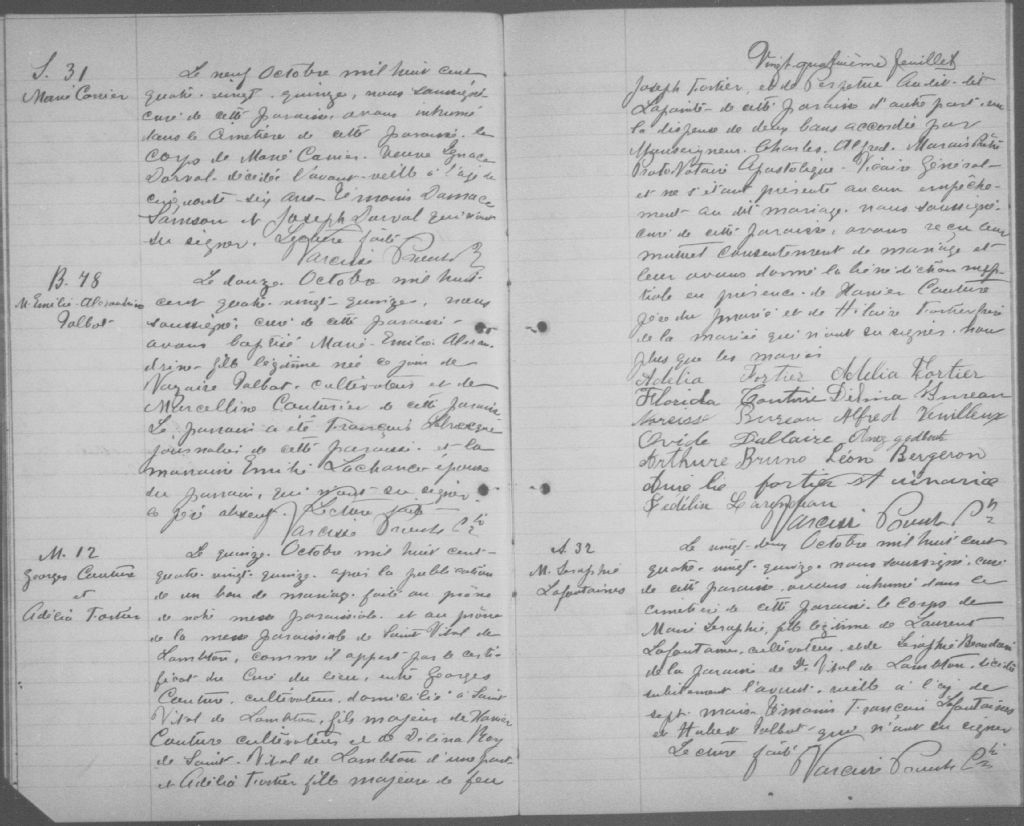 S. 31
Marie Carrier
Le neuf Octobre mil huit cent
quatre-vingt-quinze, nous soussigné
curé de cette paroisse, avons inhumé
dans le cimetière de cette paroisse le
corps de Marie Carrier, veuve Ignace
Dorval décédée l'avant-veille à l'âge de
cinquante-six ans. Témoins Damase
Samson et Joseph Dorval qui n'ont
su signer. Lecture faite
Narcisse Proulx Ptre
B. 48
M. Emélie-Alexandrine
Talbot
Le douze Octobre mil huit
cent quatre-vingt-quinze, nous
soussigné, curé de cette paroisse
avons baptisé Marie-Emélie Alexan-
drine fille légitime née ce jour de
Nazaire Talbot, cultivateur et de
Marcelline Couturier de cette paroisse.
Le parrain a été François
journalier de cette paroisse et la
marraine Emélie Lachance épouse
du parrain, qui n'ont su signer.
le père absent. Lecture faite
Narcisse Proulx Ptre
M. 12
Georges Couture
et
Adélia Fortier
Le quinze Octobre mil huit cent-
quatre-vingt-quinze après la publication
de un ban de mariage faite au prône
de notre messe paroissiale et au prône
de la messe paroissiale de Saint Vital de
Lambton, comme il appert par le certi-
ficat du Curé du lieu, entre Georges
Couture, cultivateur, domicilié à Saint
Vital de Lambton, fils majeur de Xavier
Couture cultivateur et de Délina Roy
de Saint-Vital de Lambton d'une part
et Adélia Fortier fille majeure de feu
Vingt-quatrième feuillet
Joseph Fortier, et de Perpétue Audet dit
Lapointe de cette paroisse d'autre part, vu
la dispense de deux bans accordée par
Monseigneur Charles Alfred Marois Prêtre
Proto Notaire Apostolique Vicaire Général
et ne s'étant présenté aucun empêche-
ment au dit mariage, nous soussigné,
curé de cette paroisse, avons reçu leur
mutuel consentement de mariage et
leur avons donné la bénédiction nup-
tiale en présence de Xavier Couture
père du marié et de Hilaire Fortier frère
de la mariée qui n'ont su signer non
plus que les mariés
Adélia Fortier Adélia Fortier
Florida Couture Délima Bureau
Narcisse Bureau Alfred Veuilleux
Ovide Dallaire Amez godbout
Arthure Bruno Léon Bergeron
Amelie fortier
Fidélia
Narcisse Proulx Ptre
S. 32
M. Séraphie
Lafontaines
Le vingt-deux Octobre mil huit cent
quatre-vingt-quinze nous soussigné, curé
de cette paroisse avons inhumé dans le
cimetière de cette paroisse le corps de
Marie Séraphie, fille légitime de Laurent
Lafontaines, cultivateur, et de Séraphie Beaudoin
de la paroisse de St. Vital de Lambton, décédée
subitement l'avant-veille à l'âge de
sept mois. Témoins François Lafontaines
et Hubert Talbot qui n'ont su signer
Lecture faite
Narcisse Proulx Ptre